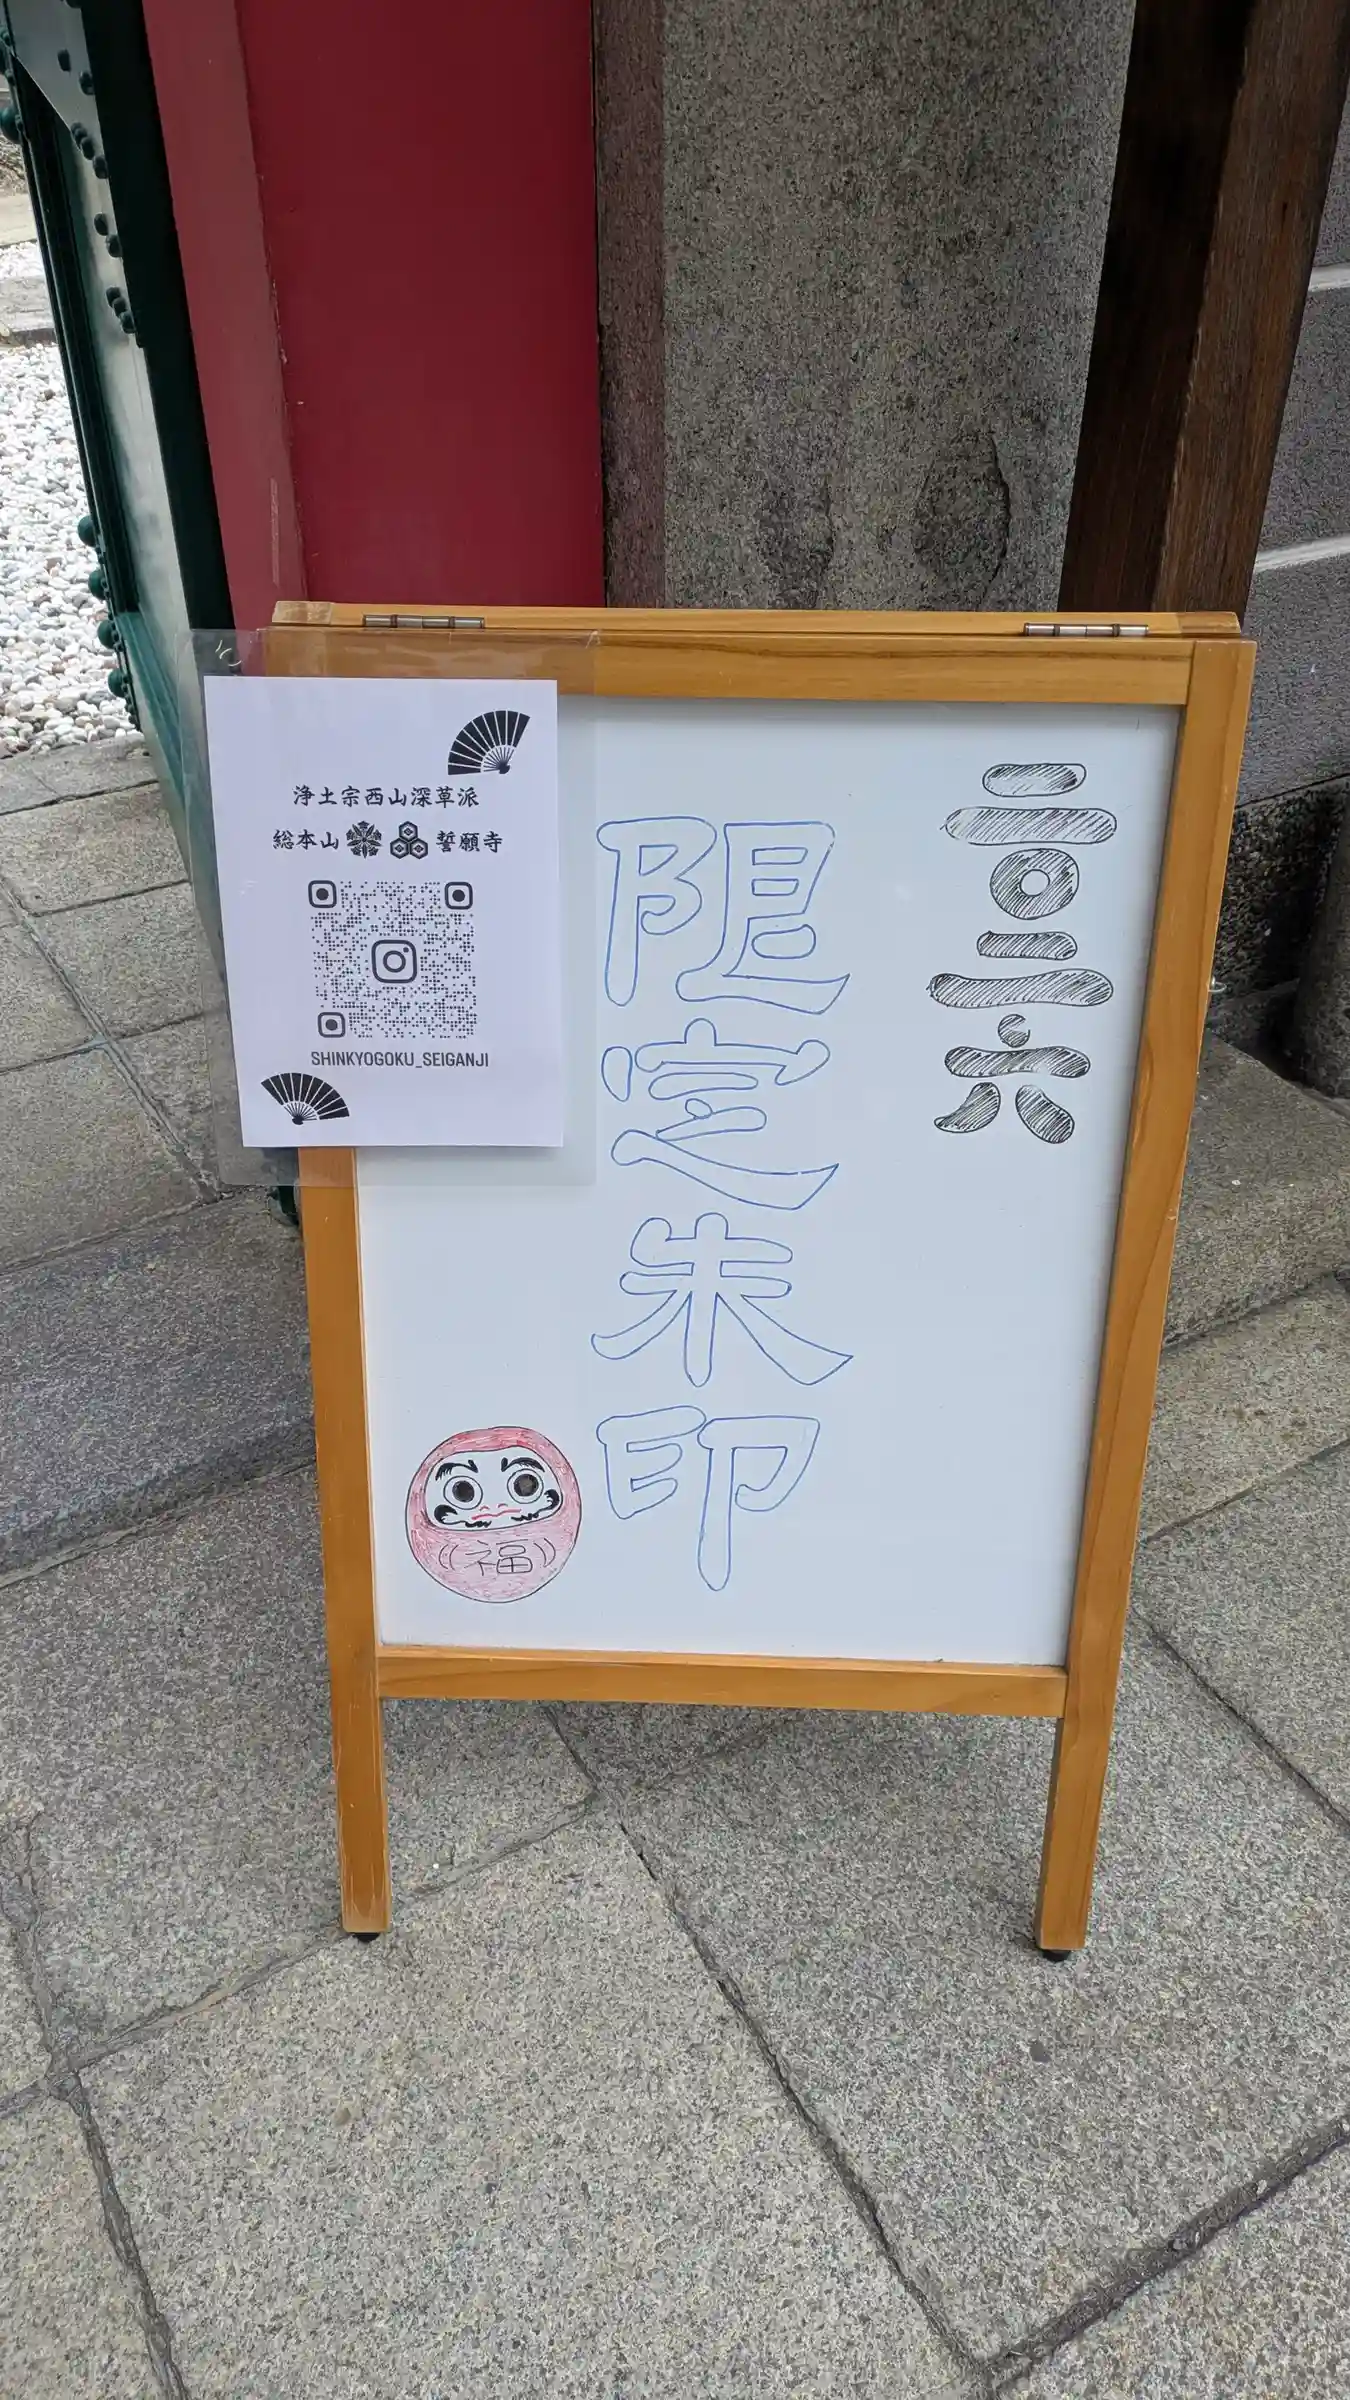 浄土宗西山深草派
総本山 誓願寺
SHINKYOGOKU_SEIGANJI
二〇二六
限定朱印
福